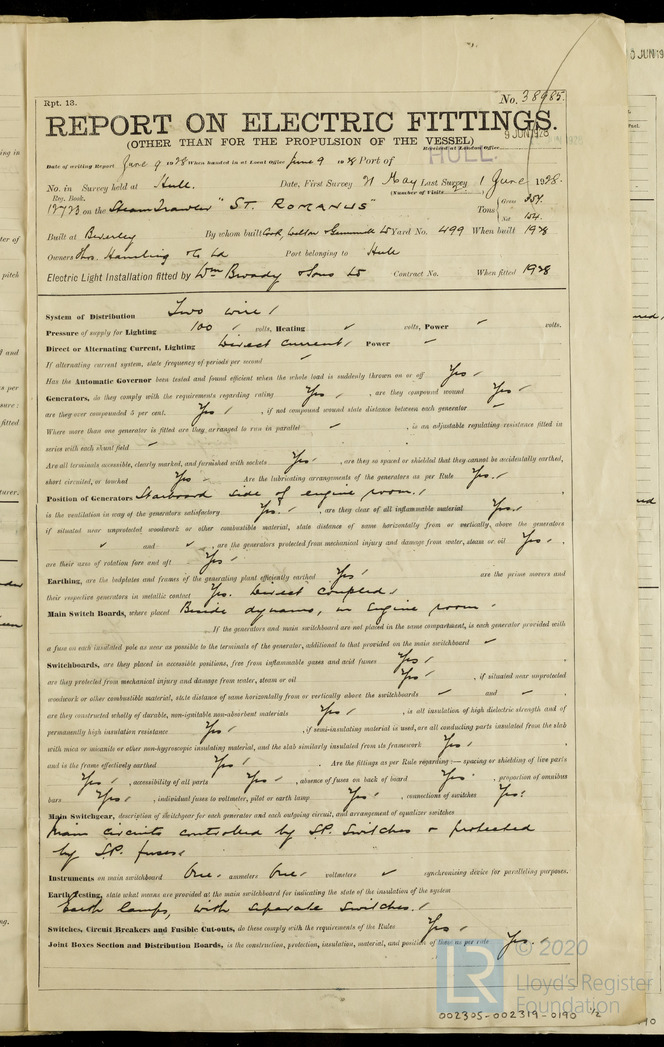 Rpt. 13.
No. 38985.
REPORT ON ELECTRIC FITTINGS.
(OTHER THAN FOR THE PROPULSION OF THE VESSEL)
9 JUN 1928
Received at London Office
HULL.
Date of writing Report June 9 1928 When handed in at Local Office June 9 1928 Port of
No. in Survey held at Hull. Date, First Survey 21 May Last Survey 1 June 1928.
Reg. Book. (Number of Visits
on the Steam Trawler "ST. ROMANUS" Tons { Gross Net
Built at Beverley By whom built Cook, Welton & Gemmell Ld Yard No. 499 When built 1928
Owners Thos. Hamling & Co Ld Port belonging to Hull
Electric Light Installation fitted by Wm Broady & Sons Ld Contract No. When fitted 1928
System of Distribution Two wire
Pressure of supply for Lighting 100 volts, Heating ✓ volts, Power ✓ volts.
Direct or Alternating Current, Lighting Direct Current Power ✓
If alternating current system, state frequency of periods per second ✓
Has the Automatic Governor been tested and found efficient when the whole load is suddenly thrown on or off Yes
Generators, do they comply with the requirements regarding rating Yes , are they compound wound Yes
are they over compounded 5 per cent. Yes , if not compound wound state distance between each generator
Where more than one generator is fitted are they arranged to run in parallel ✓ , is an adjustable regulating resistance fitted in
series with each shunt field ✓
Are all terminals accessible, clearly marked, and furnished with sockets Yes , are they so spaced or shielded that they cannot be accidentally earthed,
short circuited, or touched Yes Are the lubricating arrangements of the generators as per Rule Yes.
Position of Generators Starboard side of engine room.
is the ventilation in way of the generators satisfactory Yes. , are they clear of all inflammable material Yes.
if situated near unprotected woodwork or other combustible material, state distance of same horizontally from or vertically above the generators
✓ and ✓ , are the generators protected from mechanical injury and damage from water, steam or oil Yes ,
are their axes of rotation fore and aft Yes
Earthing, are the bedplates and frames of the generating plant efficiently earthed Yes are the prime movers and
their respective generators in metallic contact Yes. Direct Coupled.
Main Switch Boards, where placed Beside dynamo, in Engine room
If the generators and main switchboard are not placed in the same compartment, is each generator provided with
a fuse on each insulated pole as near as possible to the terminals of the generator, additional to that provided on the main switchboard ✓
Switchboards, are they placed in accessible positions, free from inflammable gases and acid fumes Yes ,
are they protected from mechanical injury and damage from water, steam or oil Yes , if situated near unprotected
woodwork or other combustible material, state distance of same horizontally from or vertically above the switchboards ✓ and ✓ ,
are they constructed wholly of durable, non-ignitable non-absorbent materials Yes , is all insulation of high dielectric strength and of
permanently high insulation resistance Yes , if semi-insulating material is used, are all conducting parts insulated from the slab
with mica or micanite or other non-hygroscopic insulating material, and the slab similarly insulated from its framework Yes ,
and is the frame effectively earthed Yes Are the fittings as per Rule regarding:— spacing or shielding of live parts
Yes , accessibility of all parts Yes , absence of fuses on back of board Yes , proportion of omnibus
bars Yes , individual fuses to voltmeter, pilot or earth lamp Yes , connections of switches Yes
Main Switchgear, description of switchgear for each generator and each outgoing circuit, and arrangement of equalizer switches
Main circuits controlled by S.P. Switches & protected
by S.P. fuses
Instruments on main switchboard One ammeters One voltmeters ✓ synchronising device for paralleling purposes.
Earth Testing, state what means are provided at the main switchboard for indicating the state of the insulation of the system
Earth lamps, with separate switches.
Switches, Circuit Breakers and Fusible Cut-outs, do these comply with the requirements of the Rules Yes
Joint Boxes Section and Distribution Boards, is the construction, protection, insulation, material, and position of these as per rule Yes.
© 2020
Lloyd's Register
Foundation
LR
002305-002319-0190 1/2